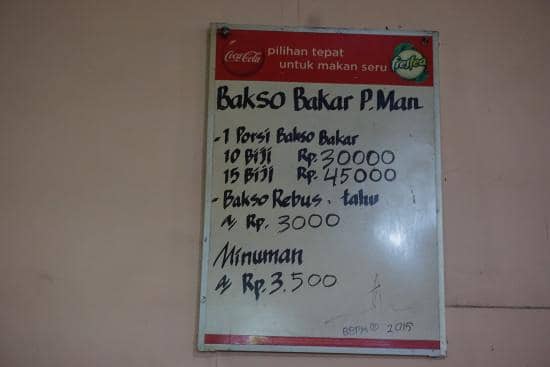 Coca-Cola
pilihan tepat
untuk makan seru
frestea
Bakso Bakar P.Man
- 1 Porsi Bakso Bakar
10 Biji Rp. 30000
15 Biji Rp. 45000
- Bakso Rebus . tahu
@ Rp. 3000
Minuman
@ Rp. 3.500
BBPM © 2015